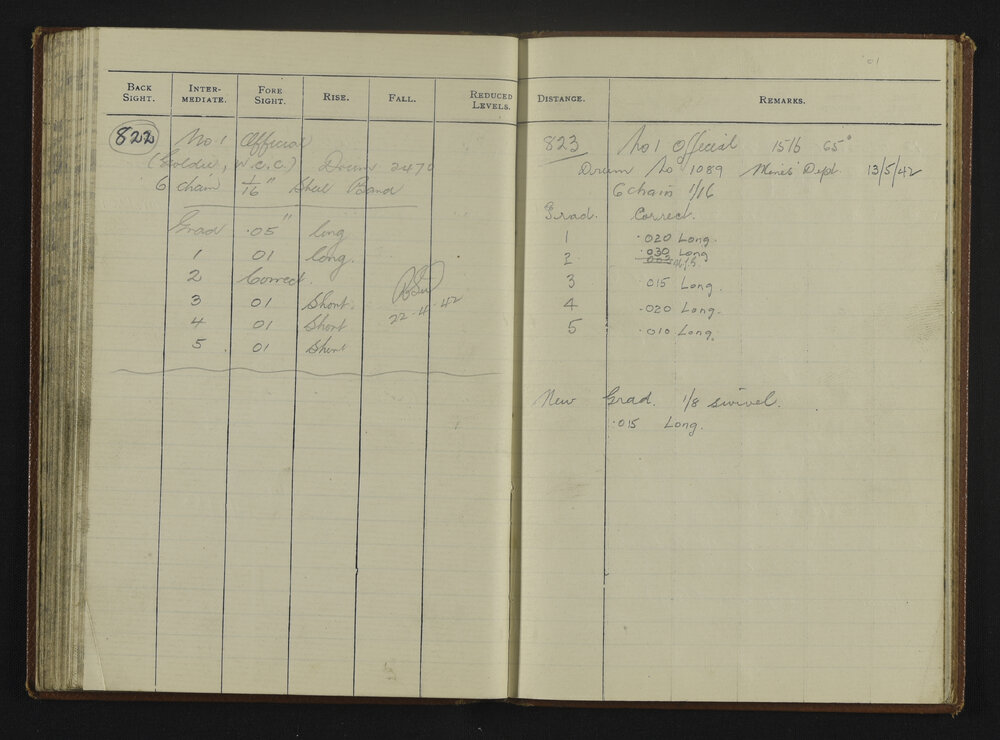 BACK SIGHT. INTER-MEDIATE. FORE SIGHT. RISE. FALL. REDUCED LEVELS.
822 No 1 Official
W.C.C.) Drum 2470
6 chain 1/16" Steel Band
Grad .05" long
1 01 long.
2 Correct.
3 01 Short.
4 01 Short
5 01 Short
22-4-42
DISTANCE. REMARKS.
01
823 No 1 Official 15 lb 65°
Drum No 1089 Mines Dept. 13/5/42
6 chain 1/16
Grad. Correct.
1 .020 Long.
2 .030 Long
3 .015 Long.
4 .020 Long.
5 .010 Long.
New Grad. 1/8 swivel.
.015 Long.